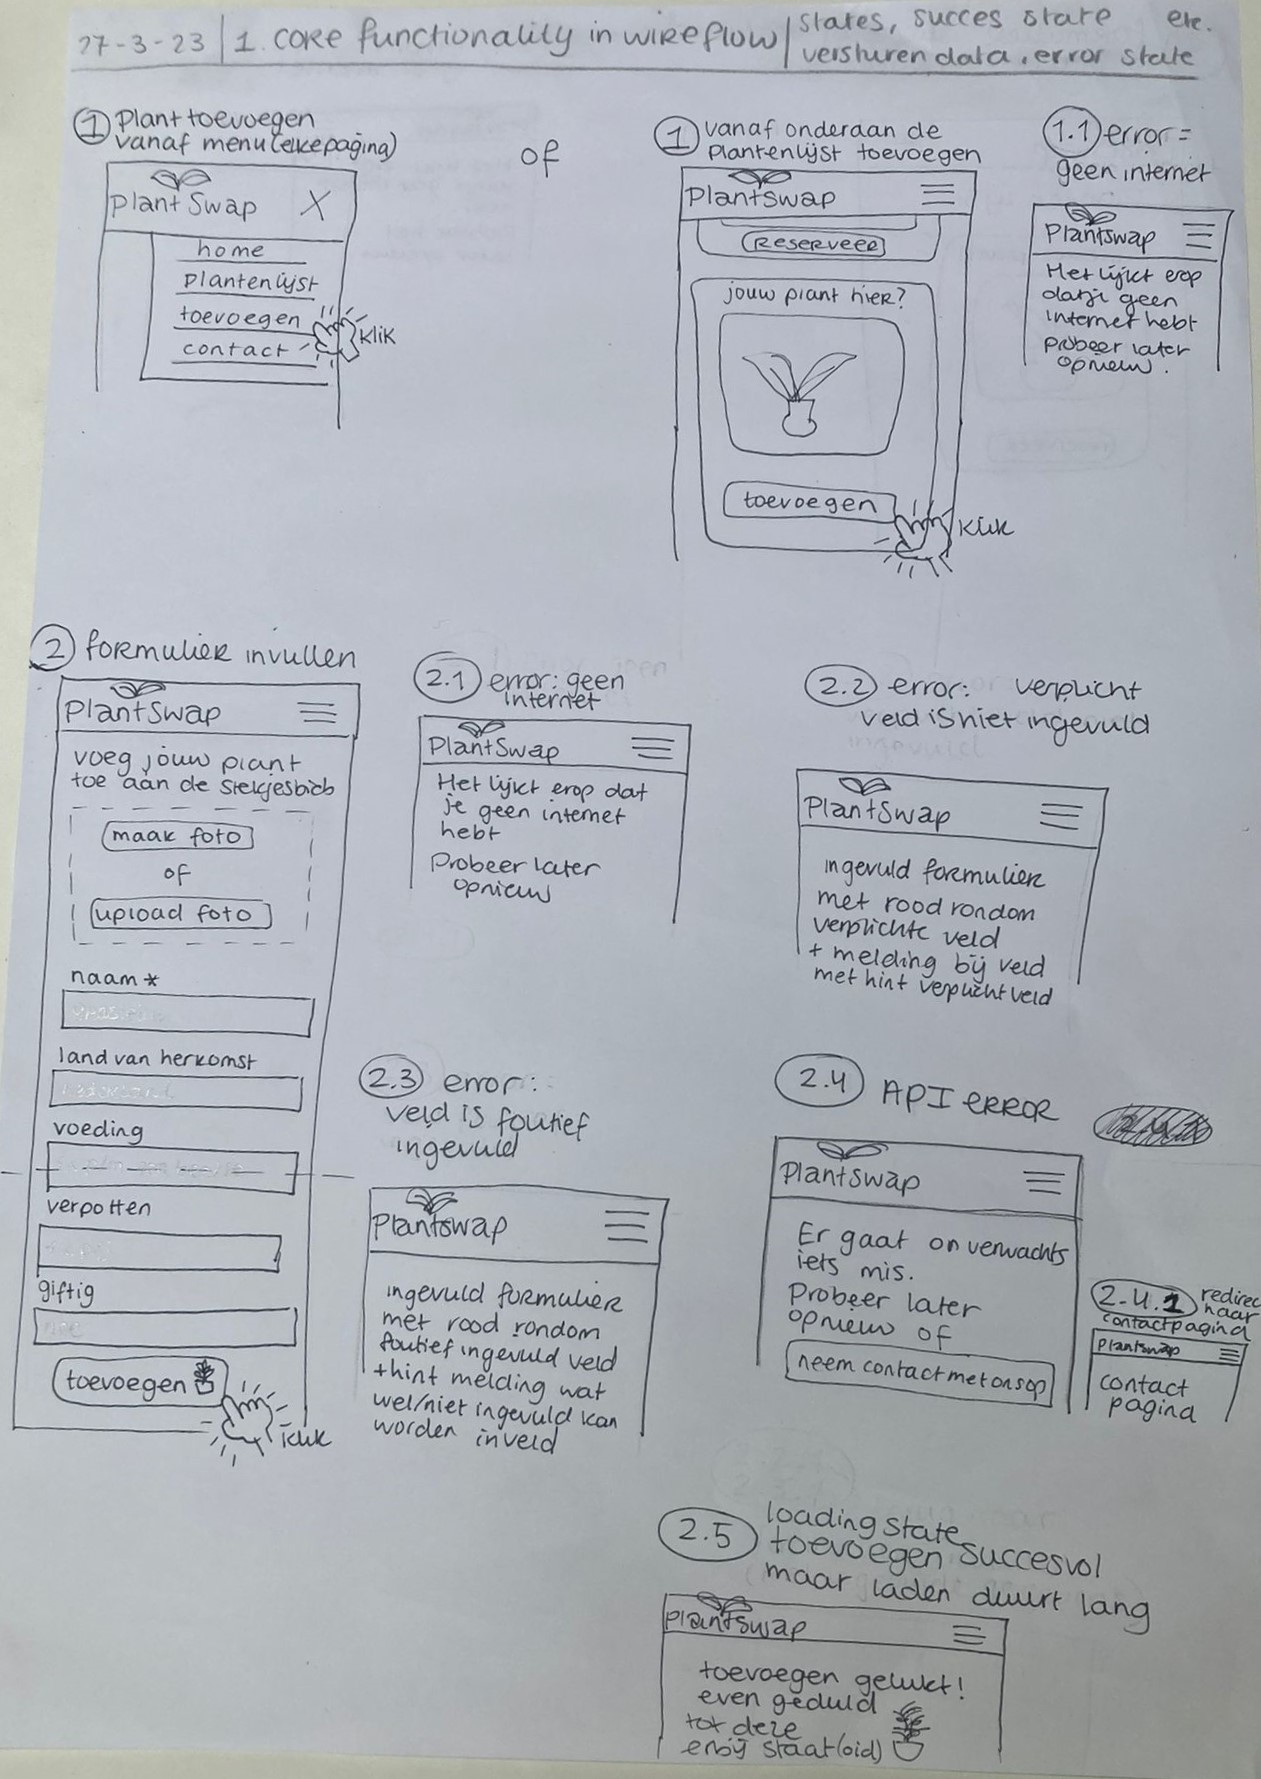 27-3-23 | 1. core functionality in wireflow | states, succes state etc.
versturen data, error state
1 Plant toevoegen
vanaf menu (elke pagina)
Plant Swap X
home
plantenlijst
toevoegen
contact
klik
of
1 vanaf onderaan de
plantenlijst toevoegen
Plantswap
Reserveer
jouw plant hier?
toevoegen
klik
1.1 error =
geen internet
Plantswap
Het lijkt erop
dat je geen
internet hebt
probeer later
opnieuw.
2 formulier invullen
PlantSwap
voeg jouw plant
toe aan de stekjesbieb
maak foto
of
upload foto
naam *
land van herkomst
voeding
verpotten
giftig
toevoegen
klik
2.1 error: geen
internet
PlantSwap
Het lijkt erop dat
je geen internet
hebt
Probeer later
opnieuw
2.2 error: verplicht
veld is niet ingevuld
PlantSwap
ingevuld formulier
met rood rondom
verplichte veld
+ melding bij veld
met hint verplicht veld
2.3 error:
veld is foutief
ingevuld
Plantswap
ingevuld formulier
met rood rondom
foutief ingevuld veld
+ hint melding wat
wel/niet ingevuld kan
worden in veld
2.4 API error
Plantswap
Er gaat onverwachts
iets mis.
Probeer later
opnieuw of
neem contact met ons op
2.4.1 redirec
naar
contactpagina
Plantswap
contact
pagina
2.5 loading state
toevoegen succesvol
maar laden duurt lang
PlantSwap
toevoegen gelukt!
even geduld
tot deze
erbij staat (oid)